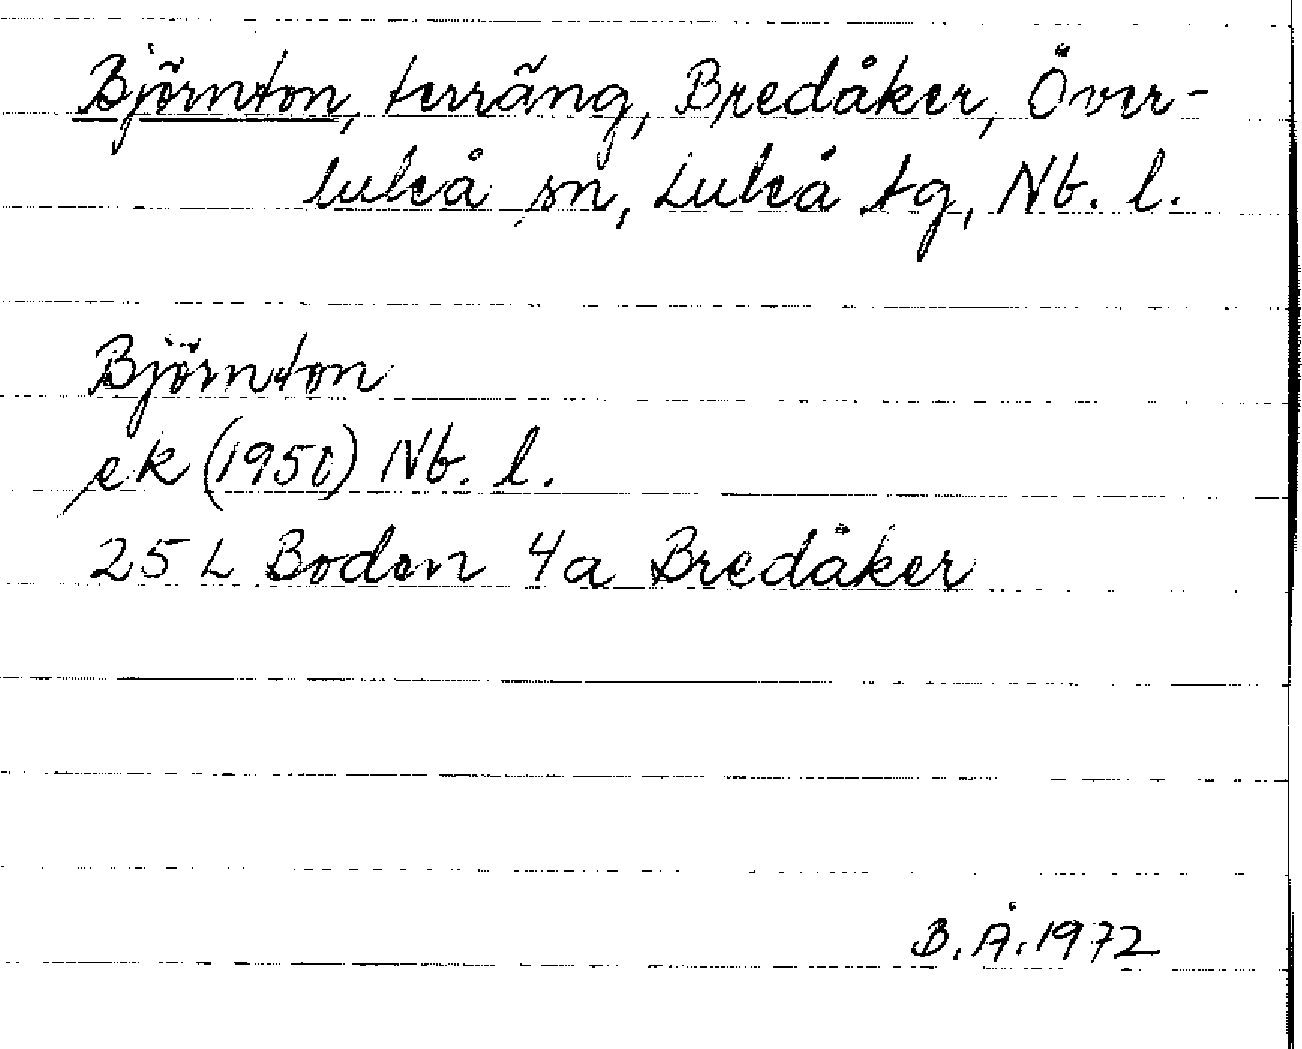 Björnton, terräng, Bredåker, Över-
luleå sn, Luleå tg, Nb. l.
Björnton
ek (1950) Nb. l.
25 L Boden 4a Bredåker
B.Å.1972